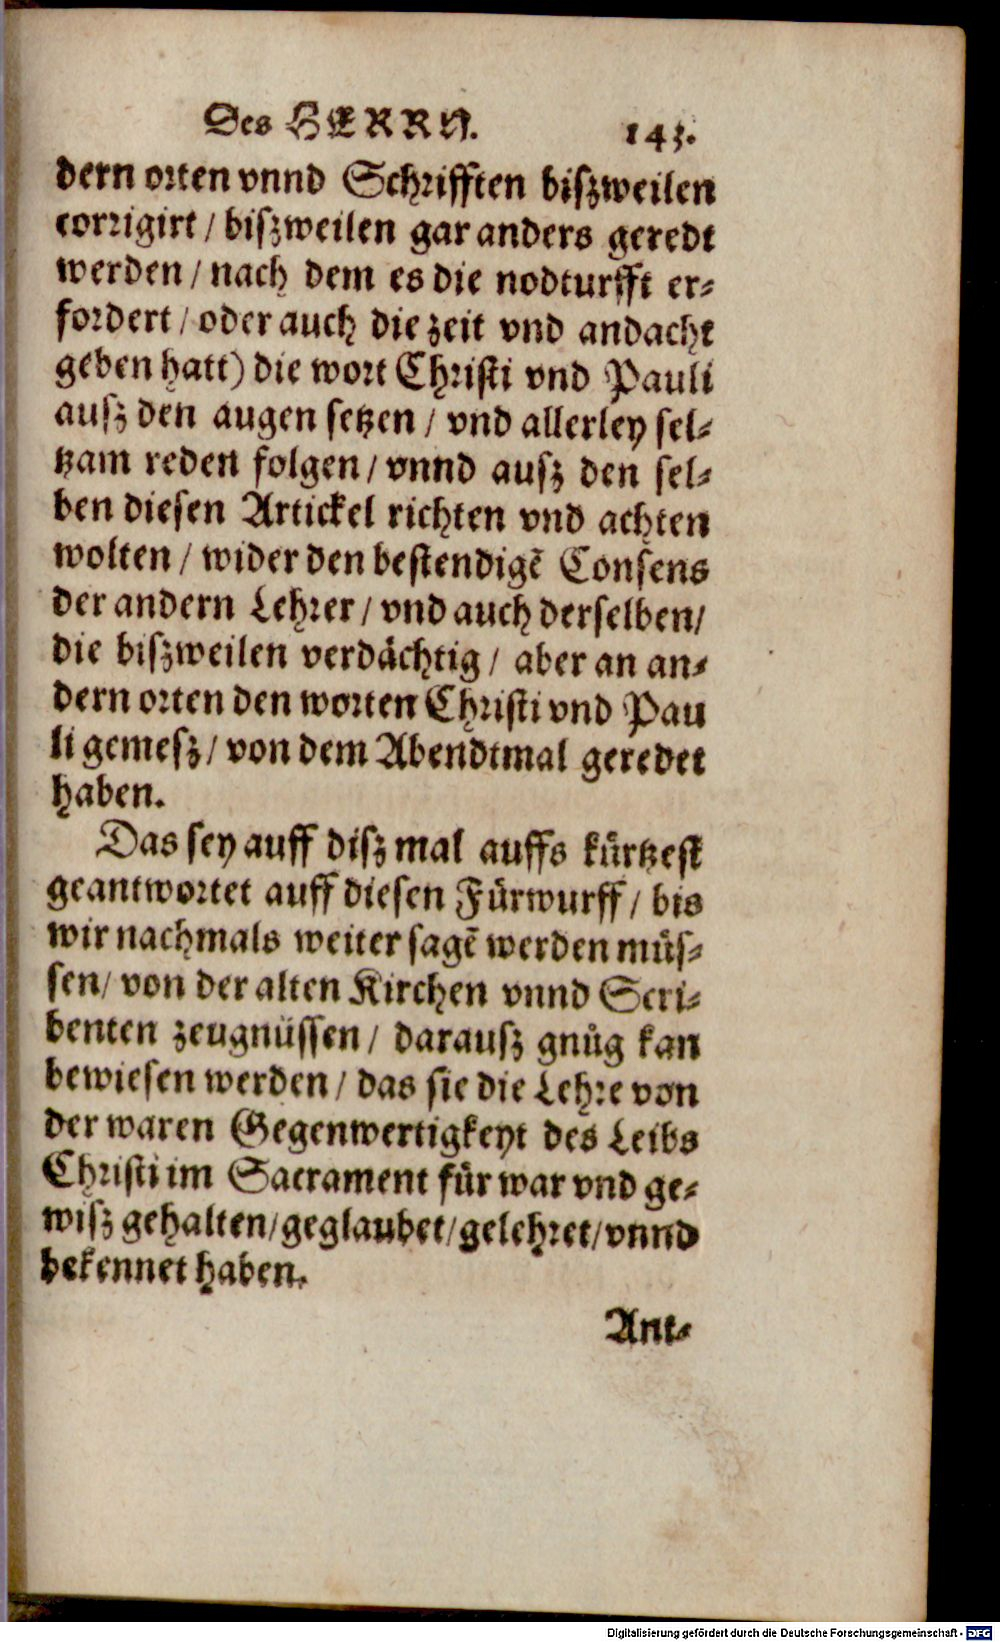 Des HERRN. 143.
dern orten vnnd Schrifften biszweilen
corrigirt / biszweilen gar anders geredt
werden / nach dem es die nodturfft er-
fordert / oder auch die zeit vnd andacht
geben hatt) die wort Christi vnd Pauli
ausz den augen setzen / vnd allerley sel-
tzam reden folgen / vnnd ausz den sel-
ben diesen Artickel richten vnd achten
wolten / wider den bestendigē Consens
der andern Lehrer / vnd auch derselben /
die biszweilen verdächtig / aber an an-
dern orten den worten Christi vnd Pau
li gemesz / von dem Abendtmal geredet
haben.
Das sey auff disz mal auffs kürtzest
geantwortet auff diesen Fürwurff / bis
wir nachmals weiter sagē werden müs-
sen / von der alten Kirchen vnnd Scri-
benten zeugnüssen / darausz gnůg kan
bewiesen werden / das sie die Lehre von
der waren Gegenwertigkeyt des Leibs
Christi im Sacrament für war vnd ge-
wisz gehalten / geglaubet / gelehret / vnnd
bekennet haben.
Ant-
Digitalisierung gefördert durch die Deutsche Forschungsgemeinschaft - DFG